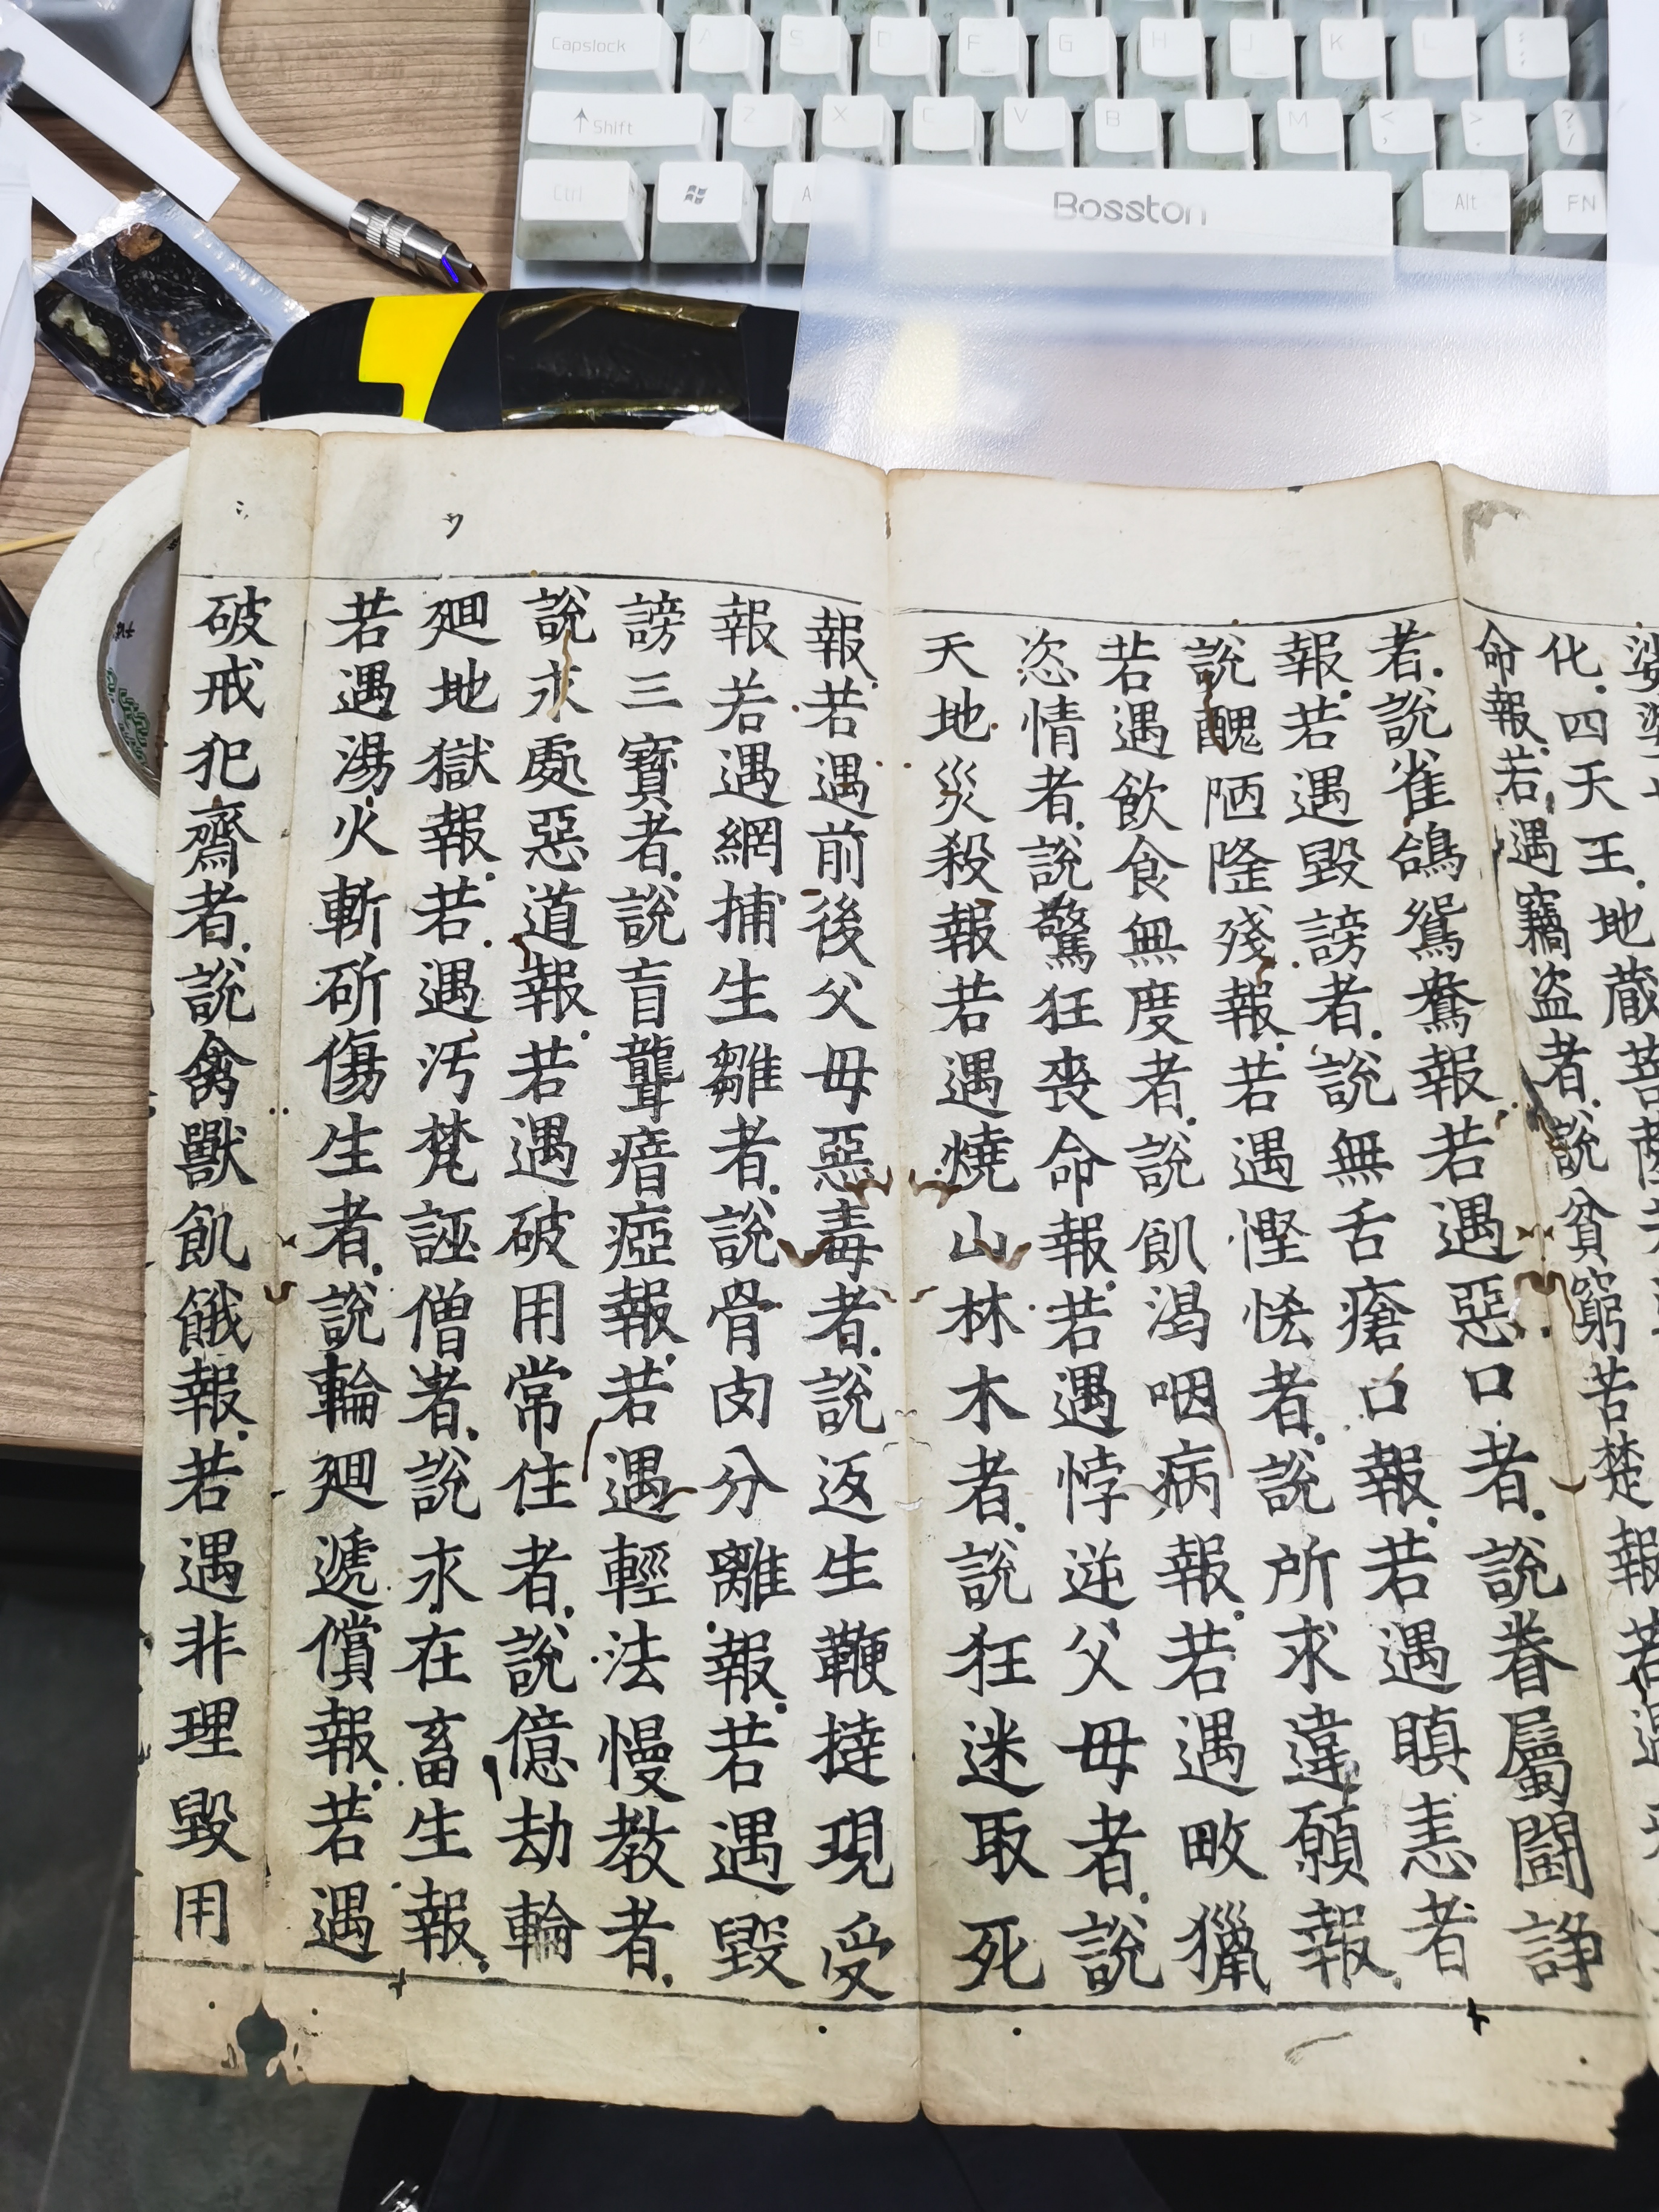 Capslock A S D F G H J K L
Shift Z X C V B M
Ctrl A Bosston Alt FN
化.四天王.地藏菩薩
命報.若遇竊盜者.說貧窮苦楚報若遇
者.說雀鴿鴛鴦報若遇惡口者.說眷屬鬪諍
報.若遇毀謗者.說無舌瘡口報.若遇瞋恚者
說醜陋癃殘報.若遇慳悋者.說所求違願報.
若遇飲食無度者.說飢渴咽病報.若遇畋獵
恣情者.說驚狂喪命報.若遇悖逆父母者.說
天地災殺報若遇燒山林木者.說狂迷取死
報.若遇前後父母惡毒者.說返生鞭撻現受
報若遇網捕生雛者.說骨肉分離報.若遇毀
謗三寶者.說盲聾瘖瘂報.若遇輕法慢教者.
說永處惡道報.若遇破用常住者.說億劫輪
廻地獄報.若遇汚梵誣僧者.說永在畜生報.
若遇湯火斬斫傷生者.說輪廻遞償報.若遇
破戒犯齋者.說禽獸飢餓報.若遇非理毀用